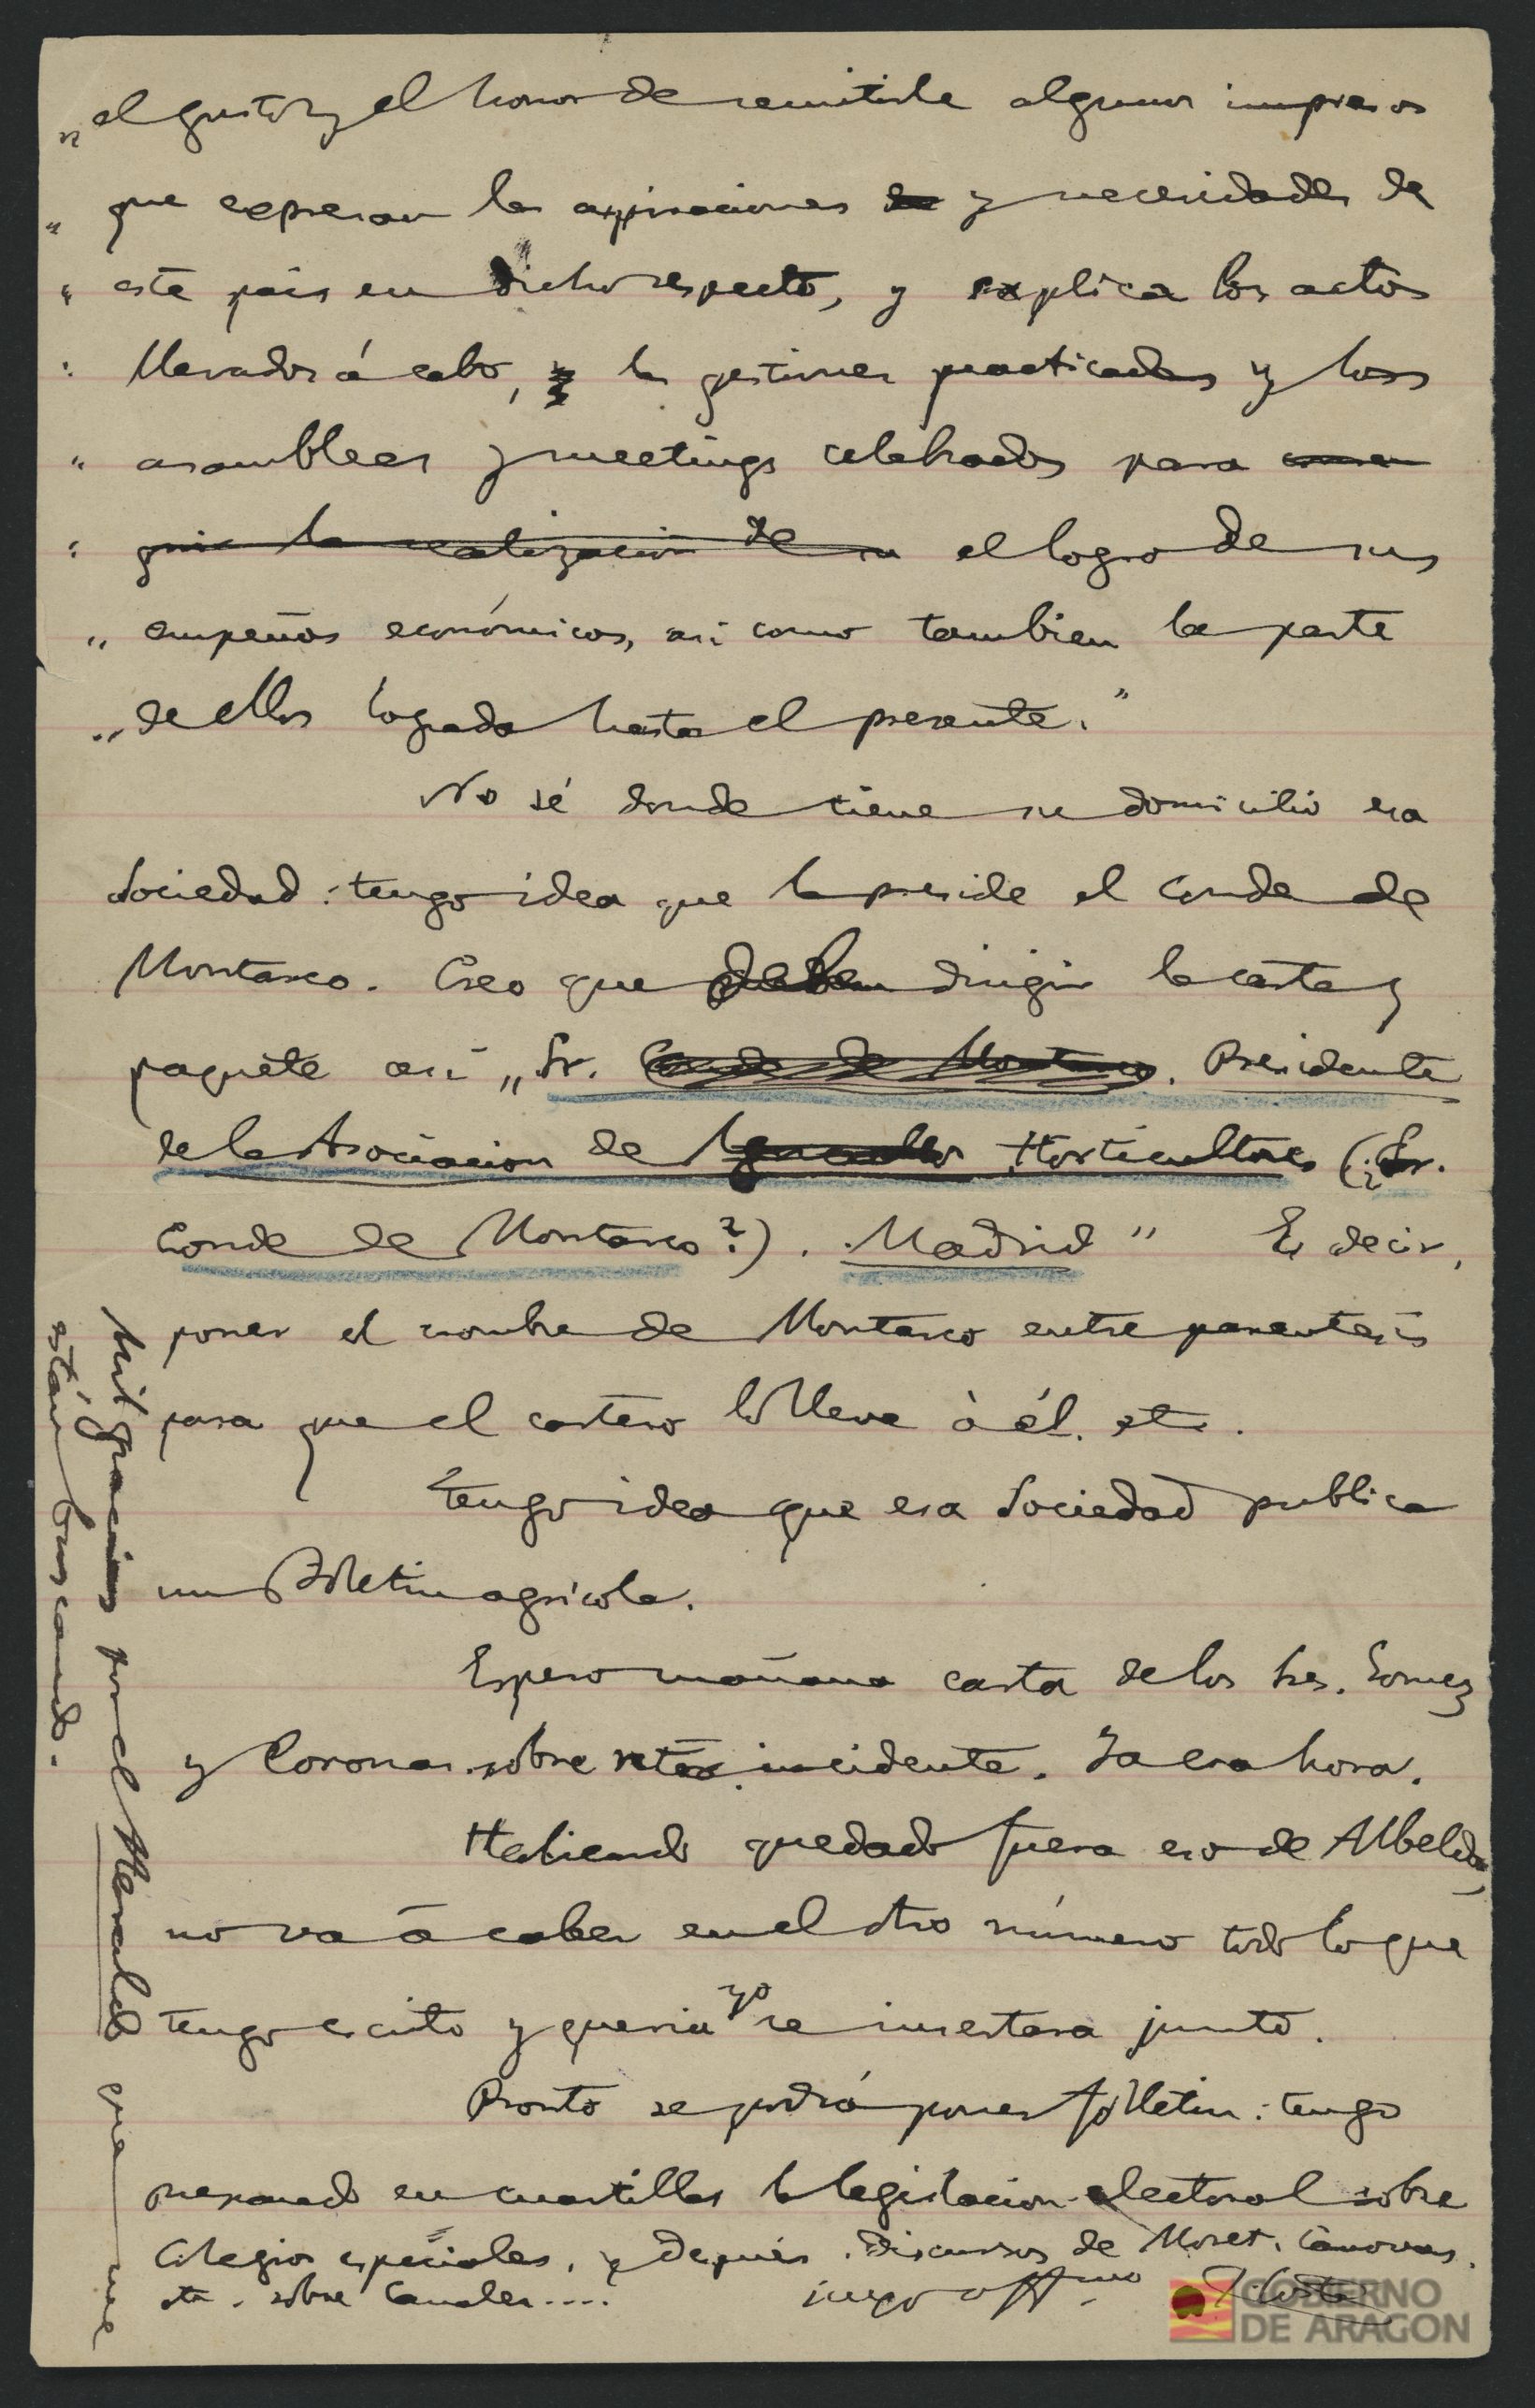 „ el gusto y el honor de remitirle algunos impresos
„ que expresan las aspiraciones de y necesidades de
„ este pais en dicho respecto, y explica los actos
„ llevados á cabo, y las gestiones practicadas y los
„ asambleas y meetings celebrados para conse
„ guir la realizacion de su el logro de sus
„ empeños económicos, asi como tambien la parte
„ de ellos lograda hasta el presente."
No sé donde tiene su domicilio esa
Sociedad: tengo idea que la preside el Conde de
Montarco. Creo que deben dirigir la carta y
paquete asi „Sr. Conde de Montarco. Presidente
de la Asociacion de Horticultores (¿Sr.
Conde de Montarco?). Madrid" Es decir,
poner el nombre de Montarco entre parentesis
para que el cartero lo lleve à él. etc.
Tengo idea que esa Sociedad publica
un Boletin agricola.
Espero mañana carta de los Sres. Gomez
y Coronas sobre este incidente. Ya era hora.
Habiendo quedado fuera eso de Albelda,
no va á caber en el otro número todo lo que
tengo escrito y queria yo se insertara junto.
Pronto se podrá poner folletin: tengo
preparado en cuartillas la legislacion electoral sobre
Colegios especiales, y después discursos de Moret, Cánovas,
etc. sobre Canales....
suyo affmo J. Costa
Mil gracias por el Heraldo que me
están buscando.
GOBIERNO
DE ARAGON